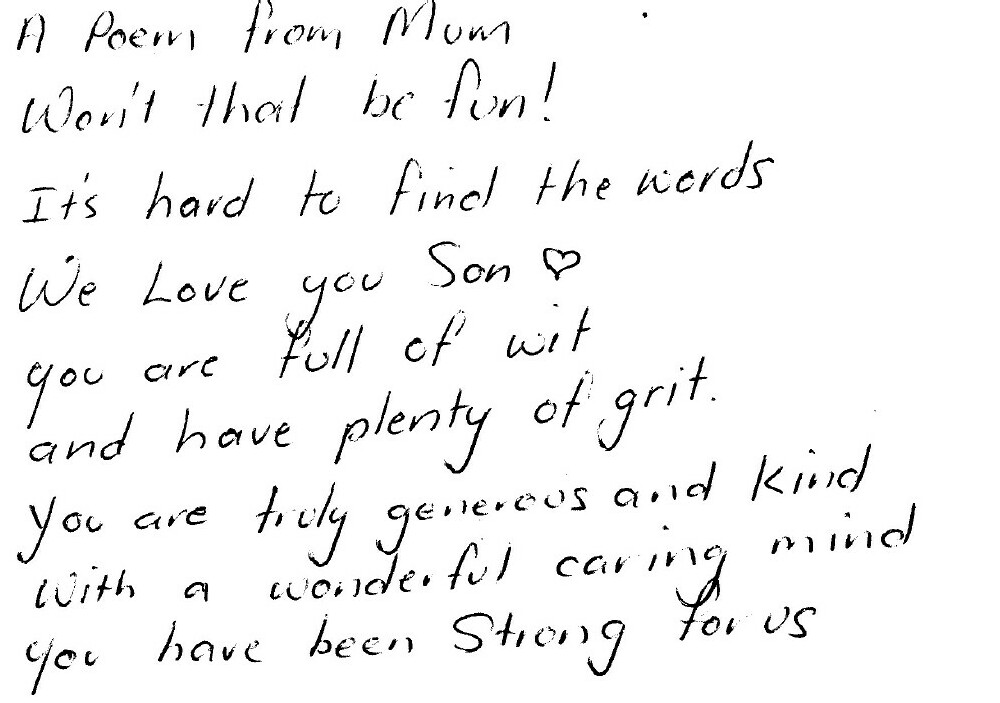 A Poem from Mum
Won't that be fun!
It's hard to find the words
We Love you Son ♡
you are full of wit
and have plenty of grit.
You are truly generous and kind
with a wonderful caring mind
you have been Strong for us